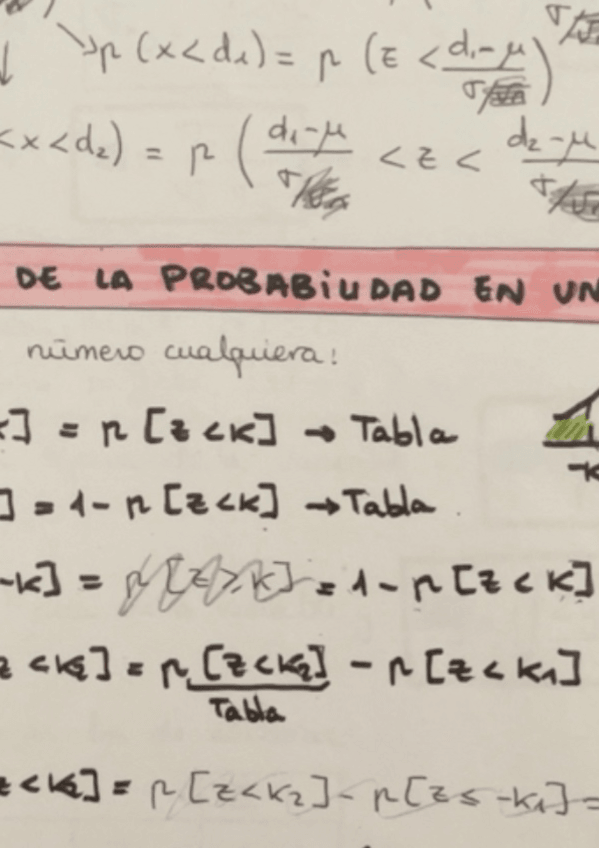 p (x<d₁) = p (z < d₁-μ / σ/√n)
<x<d₂) = p (d₁-μ / σ/√n < z < d₂-μ / σ/√n
DE LA PROBABILIDAD EN UN
número cualquiera:
k] = p [z<k] → Tabla
] = 1- p [z<k] → Tabla
-k] = p [z>k] = 1 - p [z < k]
-k
z <k₂] = p [z<k₂] - p [z < k₁]
Tabla
z<k₂] = p [z<k₂] - p [z≤ -k₁] =